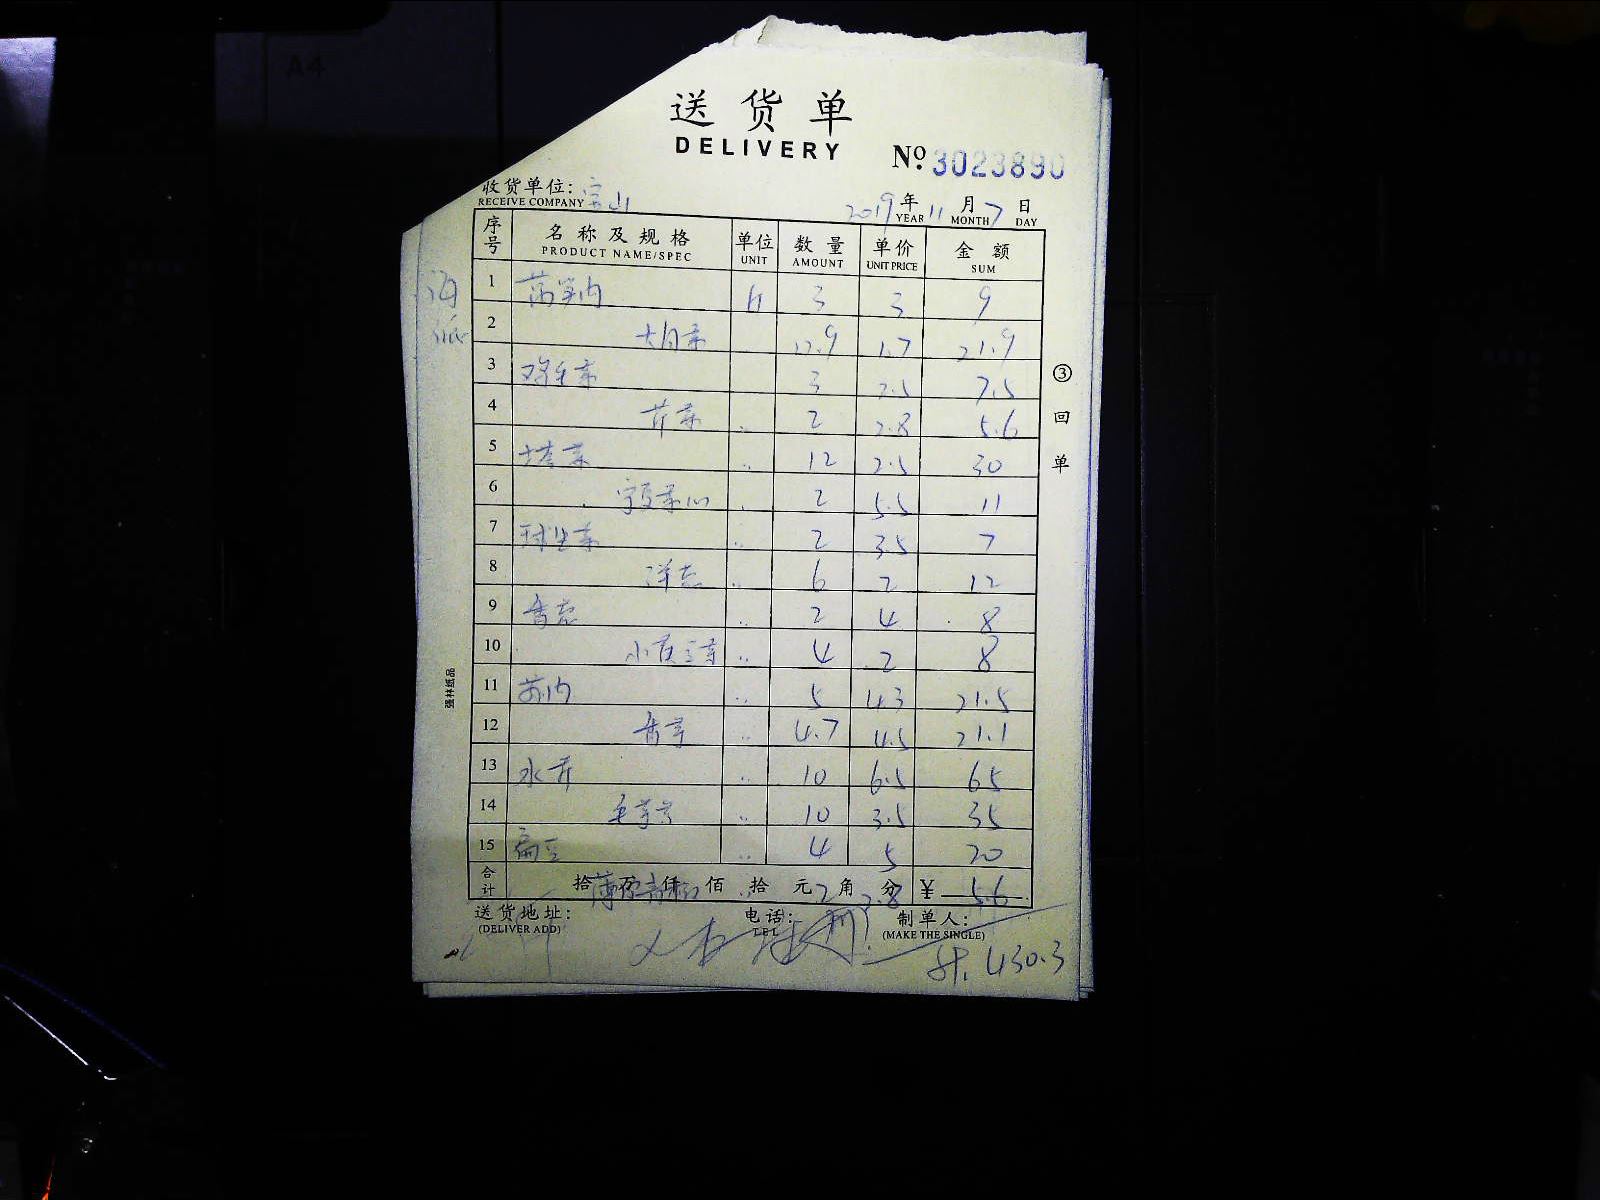 A4
送货单
DELIVERY
No. 3023890
收货单位: 宝山
RECEIVE COMPANY
2019年 11月 7日
YEAR MONTH DAY
序号 名称及规格 单位 数量 单价 金额
PRODUCT NAME/SPEC UNIT AMOUNT UNIT PRICE SUM
1 3 3 9
2 大白菜 12.9 1.7 21.9
3 鸡毛菜 3 2.5 7.5
4 芹菜 2 2.8 5.6
5 塔菜 12 2.5 30
6 宁夏菜心 2 5.5 11
7 球生菜 2 3.5 7
8 洋葱 6 2 12
9 香葱 2 4 8
10 4 2 8
11 5 4.3 21.5
12 香芋 4.7 4.5 21.1
13 水芹 10 6.5 65
14 10 3.5 35
15 扁豆 4 5 20
合计 拾 万 仟 佰 拾 元 角 分 ¥
2 2.8 5.6
送货地址: 电话: 制单人:
(DELIVER ADD) TEL (MAKE THE SINGLE)
430.3
③回单
强林纸品